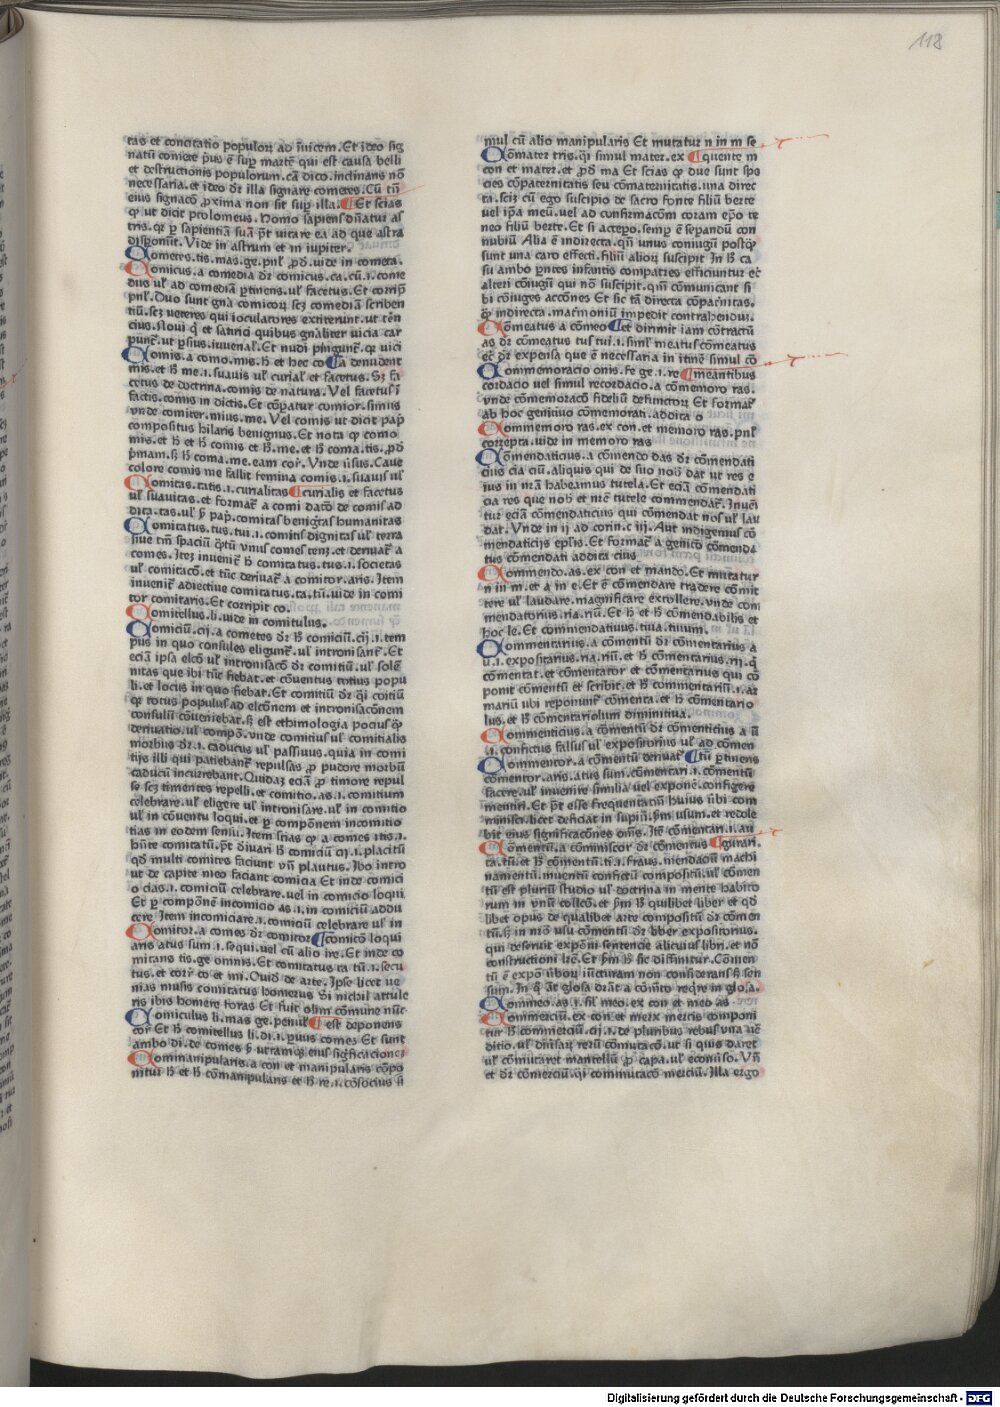 118
tas et concitatio populoꝝ ad ĩuicem. Et ideo sig
natũ comete p̃us ē sup̱ martē qui est causa belli
et destructionis populorum. cā dico. inclinans nō
necessaria. et ideo d̃r illa signare cometes. Cũ tñ
eius signacō ꝓxima non sit sup̱ illa. ¶ Et scias
ꝙ ut dicit ptolomeus. Homo sapiens dñatur as
tris. qꝛ ꝑ sapientiā suā p̃t uitare ea ad que astra
disponũt. Vide in astrum et in iupiter.
Cometes. tis. mas. ge. pñl ꝓd̃. uide in cometa.
Comicus. a comedia d̃r comicus. ca. cũ. i. come
dus ul̛ ad comediā ꝑtinens. ul̛ facetus. Et corrip̃
pñl. Duo sunt gñā comicoꝝ. scꝫ comediā scriben
tiũ. scꝫ veteres qui ioculatores extiterunt. ut tēn
cius. Noui q̃ et satirici quibus gñaliter uicia car
punt̃. ut ꝑsius. iuuenal̛. Et nudi pingunt̃. qꝛ uici
Comis. a como. mis. h̃ et hec co ¶ a denudent
mis. et h̃ me. i. suauis ul̛ curial̛ et facetus. Sꝫ fa
cetus de doctrina. comis de natura. Vel facetus ĩ
factis. comis in dictis. Et cōpatur comior. simus
vnde comiter. mius. me. Vel comis ut dicit pap̃
compositus hilaris benignus. Et nota ꝙ como
mis. et h̃ et h̃ comis et h̃. me. et h̃ coma. tis. ꝓd̃
p̃mam. sꝫ h̃ coma. me. eam cor̃. Vnde ũsus. Caue
colore comis me fallit femina comis. i. suauis ul̛
Comitas. tatis. i. curialitas ¶ curialis et facetus
ul̛ suauitas. et format̃ a comi datō de comis ad
dita. tas. ul̛ ẜ pap̃. comitas benigtas humanitas
Comitatus. tus. tui. i. comitis dignitas ul̛ terra
siue tñ spaciũ q̃tũ vnus comes tenꝫ. et deriuat̃ a
comes. Itē inuenit̃ h̃ comitatus. tus. i. societas
ul̛ comitacō. et tũc deriuat̃ a comitor. aris. Item
inuenit̃ adiectiue comitatus. ta. tũ. uide in comi
tor comitaris. Et corripit co.
Comitellus. li. uide in comitulus.
Comiciũ. cij. a cometes d̃r h̃ comiciũ. cij. i. tem
pus in quo consules eligunt̃. ul̛ intronisant̃. Et
eciā ipsa elcō ul̛ intronisacō d̃r comitiũ. ul̛ solē
nitas que ibi tũc fiebat. et cōuentus totius popu
li. et locus in quo fiebat. Et comitiũ d̃r q̃i coitiũ
qꝛ totus populus ad elcōnem et intronisacōnem
consuliũ cōueniebat. sꝫ est ethimologia pocius q̃ꝫ
deriuatio. ul̛ compō. vnde comitius ul̛ comitialis
morbus d̃r. i. caducus ul̛ passiuus. quia in comi
tijs illi qui patiebant̃ repulsas ꝓ pudore morbũ
caducũ incurrebant. Quidaꝫ eciā ꝓ timore repul
se scꝫ timentes repelli. et comitio. as. i. comitium
celebrare. ul̛ eligere ul̛ intronisare. ul̛ in comitio
ul̛ in cōuentu loqui. et ꝑ compōnem incomitio
tias in eodem sensu. Item scias ꝙ a comes itis. i.
hñte comitatũ. p̃t diuari h̃ comiciũ cij. i. placitũ
qd̃ multi comites faciunt vñ plautus. Ibo intro
ut de capite meo faciant comicia Et inde comici
o cias. i. comiciũ celebrare. uel in comicio loqui.
Et ꝑ compōnē incomicio as. i. in comiciũ addu
cere Item incomiciare. i. comiciũ celebrare ul̛ in
Comitor. a comes d̃r comitor ¶ comicō loqui
aris atus sum. i. sequi. vel cũ alio ire. Et inde co
mitans tis. ge omnis. Et comitatus ta tũ. i. secu
tus. et cor̃ co et mi. Ouid̃ de arte. Ipse licet ue
nias musis comitatus homerus Si nichil attule
ris ibis homere foras Et fuit olim cōmune nũc
Comiculus li. mas ge. penul̛ ¶ est deponens
cor̃ Et h̃ comitellus li. di. i. ꝑuus comes Et sunt
ambo di. de comes ẜ utramqꝫ eius significacionē
Commanipularis. a con et manipularis cōpo
nitur h̃ et h̃ cōmanipularis et h̃ re. i. cōsocius sĩ
mul cũ alio manipularis Et mutatur n in m se
Cōmater tris. q̃i simul mater. ex ¶ quente m
con et mater. et ꝓd̃ ma Et scias ꝙ due sunt sp̃e
cies cōpaternitatis seu cōmaternitatis. una direc
ta. sciꝫ cũ ego suscipio de sacro fonte filiũ berte
vel ip̃a meũ. uel ad confirmacōm coram ep̃o te
neo filiũ berte. Et sĩ accep̱o. semp̱ ē sep̱andũ con
nubiũ Alia ē indirecta. qñ unus coniugũ postq̃ꝫ
sunt una caro effecti. filiũ alioꝝ suscipit. In h̃ ca
su ambo ꝑntes infantis compatres efficiuntur et̃
alteri cōiugũ qui nō suscipit. qm̃ cōmunicant si
bi cōiuges accōnes Et sic tā directa cōpar̃nitas.
q̃ꝫ indirecta. mar̃moniũ impedit contrahenduꝫ.
Cōmeatus a cōmeo ¶ et dirimit iam cōtractũ
as. d̃r cōmeatus tus tui. i. siml̛ meatus cōmeatus
et̃ d̃r expensa que ē necessaria in itinē simul cō
Commemoracio onis. fe ge. i. re ¶ meantibus
cordacio vel simul recordacio. a cōmemoro ras.
vnde cōmemoracō fideliũ defunctoꝝ Et format̃
ab hoc genitiuo cōmemorati. addita o
Commemoro ras. ex con. et memoro ras. pñl
correpta. uide in memoro ras
Cōmendaticius. a cōmendo das d̃r cōmendati
cius cia ciũ. aliquis qui de suo nob̃ dat̃ ut res e
ius in nr̃ā habeamus tutela. Et eciā cōmendati
cia res que nob̃ et nr̃e tutele commendat̃. Inueĩ
tur eciā cōmendaticius qui cōmendat nos ul̛ lau
dat. Vnde in ij ad corin. c iij. Aut indigemus cō
mendaticijs ep̃lis. Et format̃ a genitō cōmenda
tus cōmendati addita cius
Commendo. as. ex con et mando. Et mutatur
n in m. et a in e. Et ē cōmendare tradere cōmit
tere ul̛ laudare. magnificare extollere. vnde com
mendatorius. ria. riũ. Et h̃ et h̃ cōmendabilis et
hoc le. Et commendatiuus. tiua. tiuum.
Commentarius. a cōmentũ d̃r cōmentarius a
ũ. i. expositarius. ria. riũ. et h̃ cōmentarius. rij. q̃
cōmentat. et cōmentator et cōmentarius qui cō
ponit cōmentũ et scribit. et h̃ commentariũ. i. ar
mariũ ubi reponunt̃ cōmenta. et h̃ cōmentario
lus. et h̃ cōmentariolum diminitiua.
Commenticius. a cōmentũ d̃r cōmenticius a ũ
.i. confictus falsus ul̛ expositorius ul̛ ad cōmen
Commentor. a cōmentũ deriuat̃ ¶ tũ ꝑtinens
cōmentor. aris. atus sum. cōmentari. i. cōmentũ
facere. ul̛ inuenire similia vel exponē. configere
mentiri. Et p̃t esse frequentatiũ huius ũbi com
miniscī. licet deficiat in supinĩ. ẜm usum. et redole
bit eius significacōnes oms̃. Itē cōmentari. i. au
Cōmentũ. a cōminiscor d̃r cōmentus ¶ gurari.
ta. tũ. et h̃ cōmentũ. ti. i. fraus. mendaciũ machi
namentũ. inuentũ confictũ compositũ. ul̛ cōmen
tũ est pluriũ studio ul̛ doctrina in mente habito
rum in vnũ collcō. et ẜm h̃ quilibet liber et qd̃
libet opus de qualibet arte compositũ d̃r cōmen
tũ. sꝫ in nr̃o usu cōmentũ d̃r liber expositorius.
qui deseruit expōni sentencie alicuius libri. et nō
constructioni lr̃e. Et ẜm h̃ sic diffinitur. Cōmen
tũ ē expō ũboꝝ iũcturam non considerans sꝫ sen
sum. In q̃ a glosa dr̃at a cōm̃to req̃re in glosa.
Commeo. as. i. sil̛ meo. ex con et meo as
Commerciũ. ex con et merx mercis componi
tur h̃ commerciũ. cij. i. de pluribus rebus vna uē
ditio. ul̛ diũsaꝝ rerũ cōmutacō. ut si quis daret
ul̛ cōmutaret mantellũ ꝓ capa. ul̛ ecōuerso. Vñ
et d̃r cōmerciũ. q̃i commutacō merciũ. Illa ergo
Digitalisierung gefördert durch die Deutsche Forschungsgemeinschaft - DFG